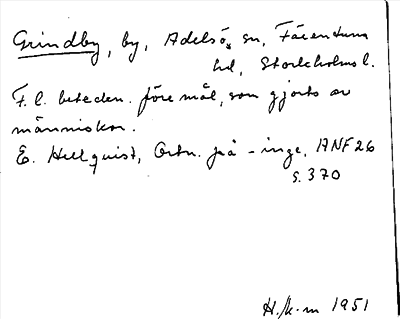 Grindby, by, Adelsö sn, Färentuna
hd, Stockholms l.
F. l. beteckn. föremål, som gjorts av
människor.
E. Hellquist, Ortn. på -inge, ANF 26
s. 370
H. /k-m 1951